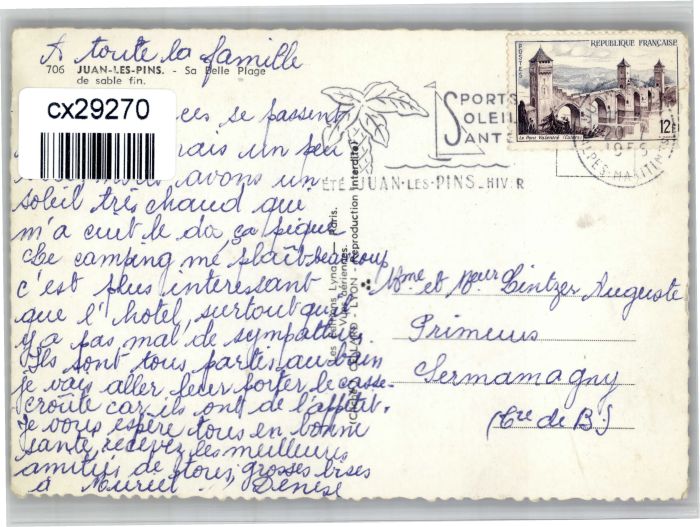 A toute la famille
706 JUAN-LES-PINS. - Sa Belle Plage
de sable fin.
cx29270
se passent
mais un peu
avons un
soleil très chaud que
m'a cuit le do ça pique
Le camping me plaît beaucoup
c'est plus interessant
que l'hotel, surtout qu'il
y a pas mal de sympathies.
Ils sont tous parties au bain
je vais aller leur porter le casse-
croûte car ils ont de l'appétit.
Je vous espère tous en bonne
santé, recevez les meilleures
amitiés de tous, grosses bises
à Muriel Denise
Les Editions Lyna — Paris.
Vues aériennes.
LYON - Reproduction interdite)
SPORTS
SOLEIL
SANTE
ÉTÉ JUAN-LES-PINS HIVER
REPUBLIQUE FRANÇAISE
POSTES
12F
Le Pont Valentré (Cahors)
ALPES-MARITIMES
Mme et Mr Lintzer Auguste
Primeurs
Sermamagny
(Tre de B)